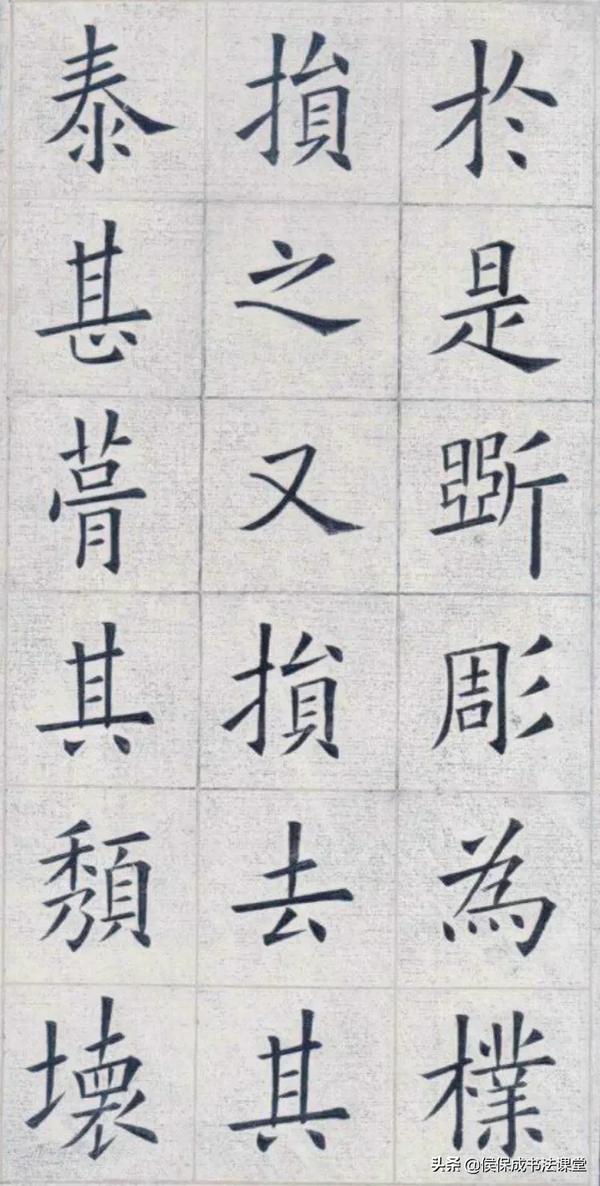 於是斵彫為樸
損之又損去其
泰甚葺其頹壞
头条 @侯保成书法课堂